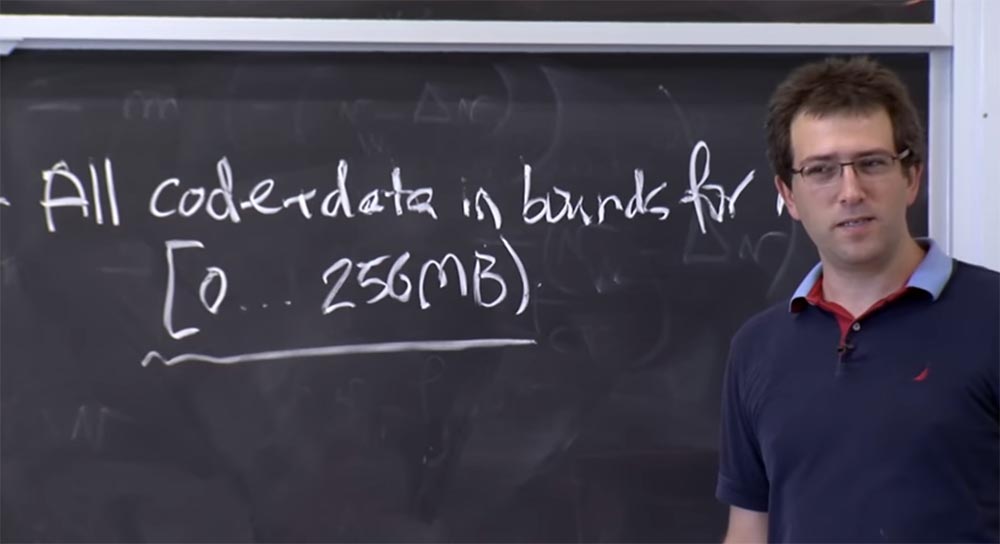 - All code+data in bounds for
[0... 256MB)